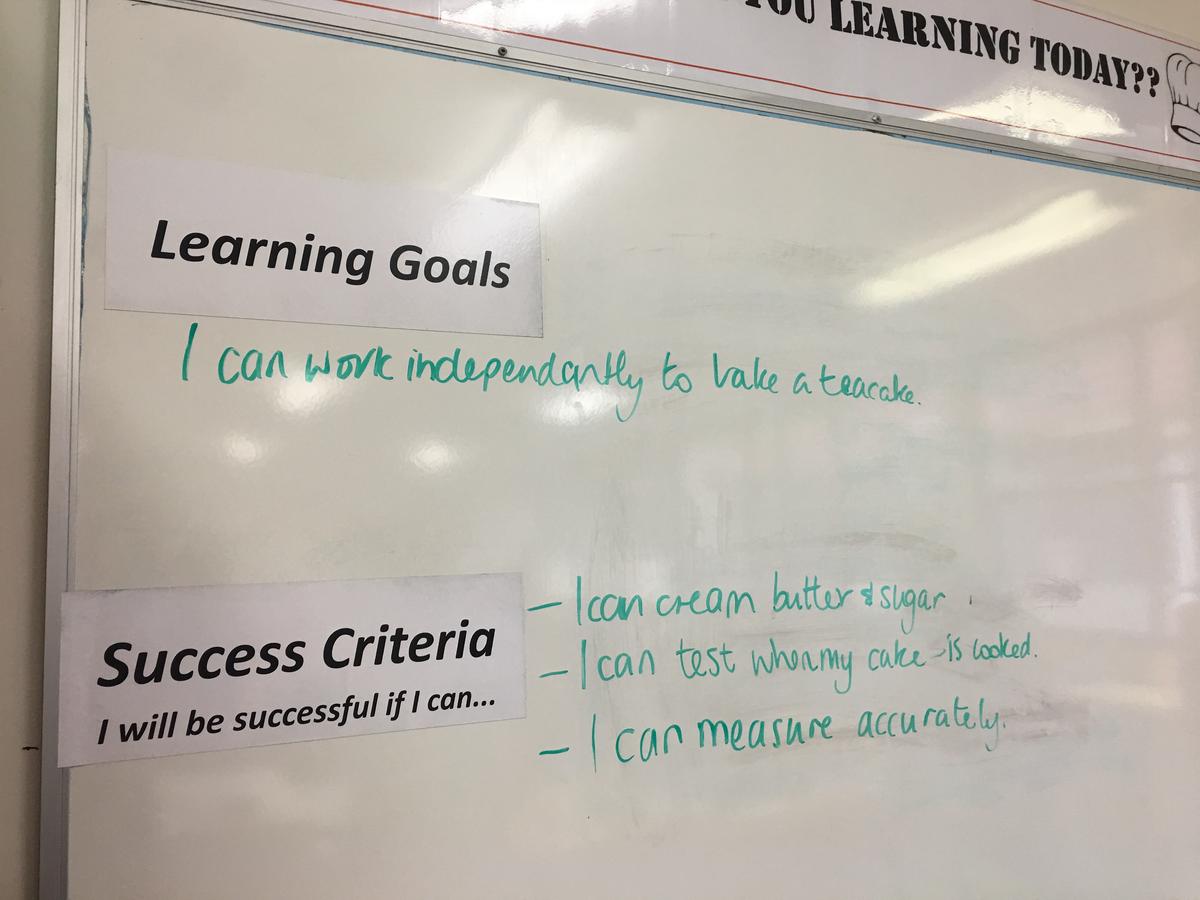 YOU LEARNING TODAY??
Learning Goals
I can work independantly to bake a teacake.
Success Criteria
I will be successful if I can...
- I can cream butter & sugar
- I can test when my cake is cooked.
- I can measure accurately.